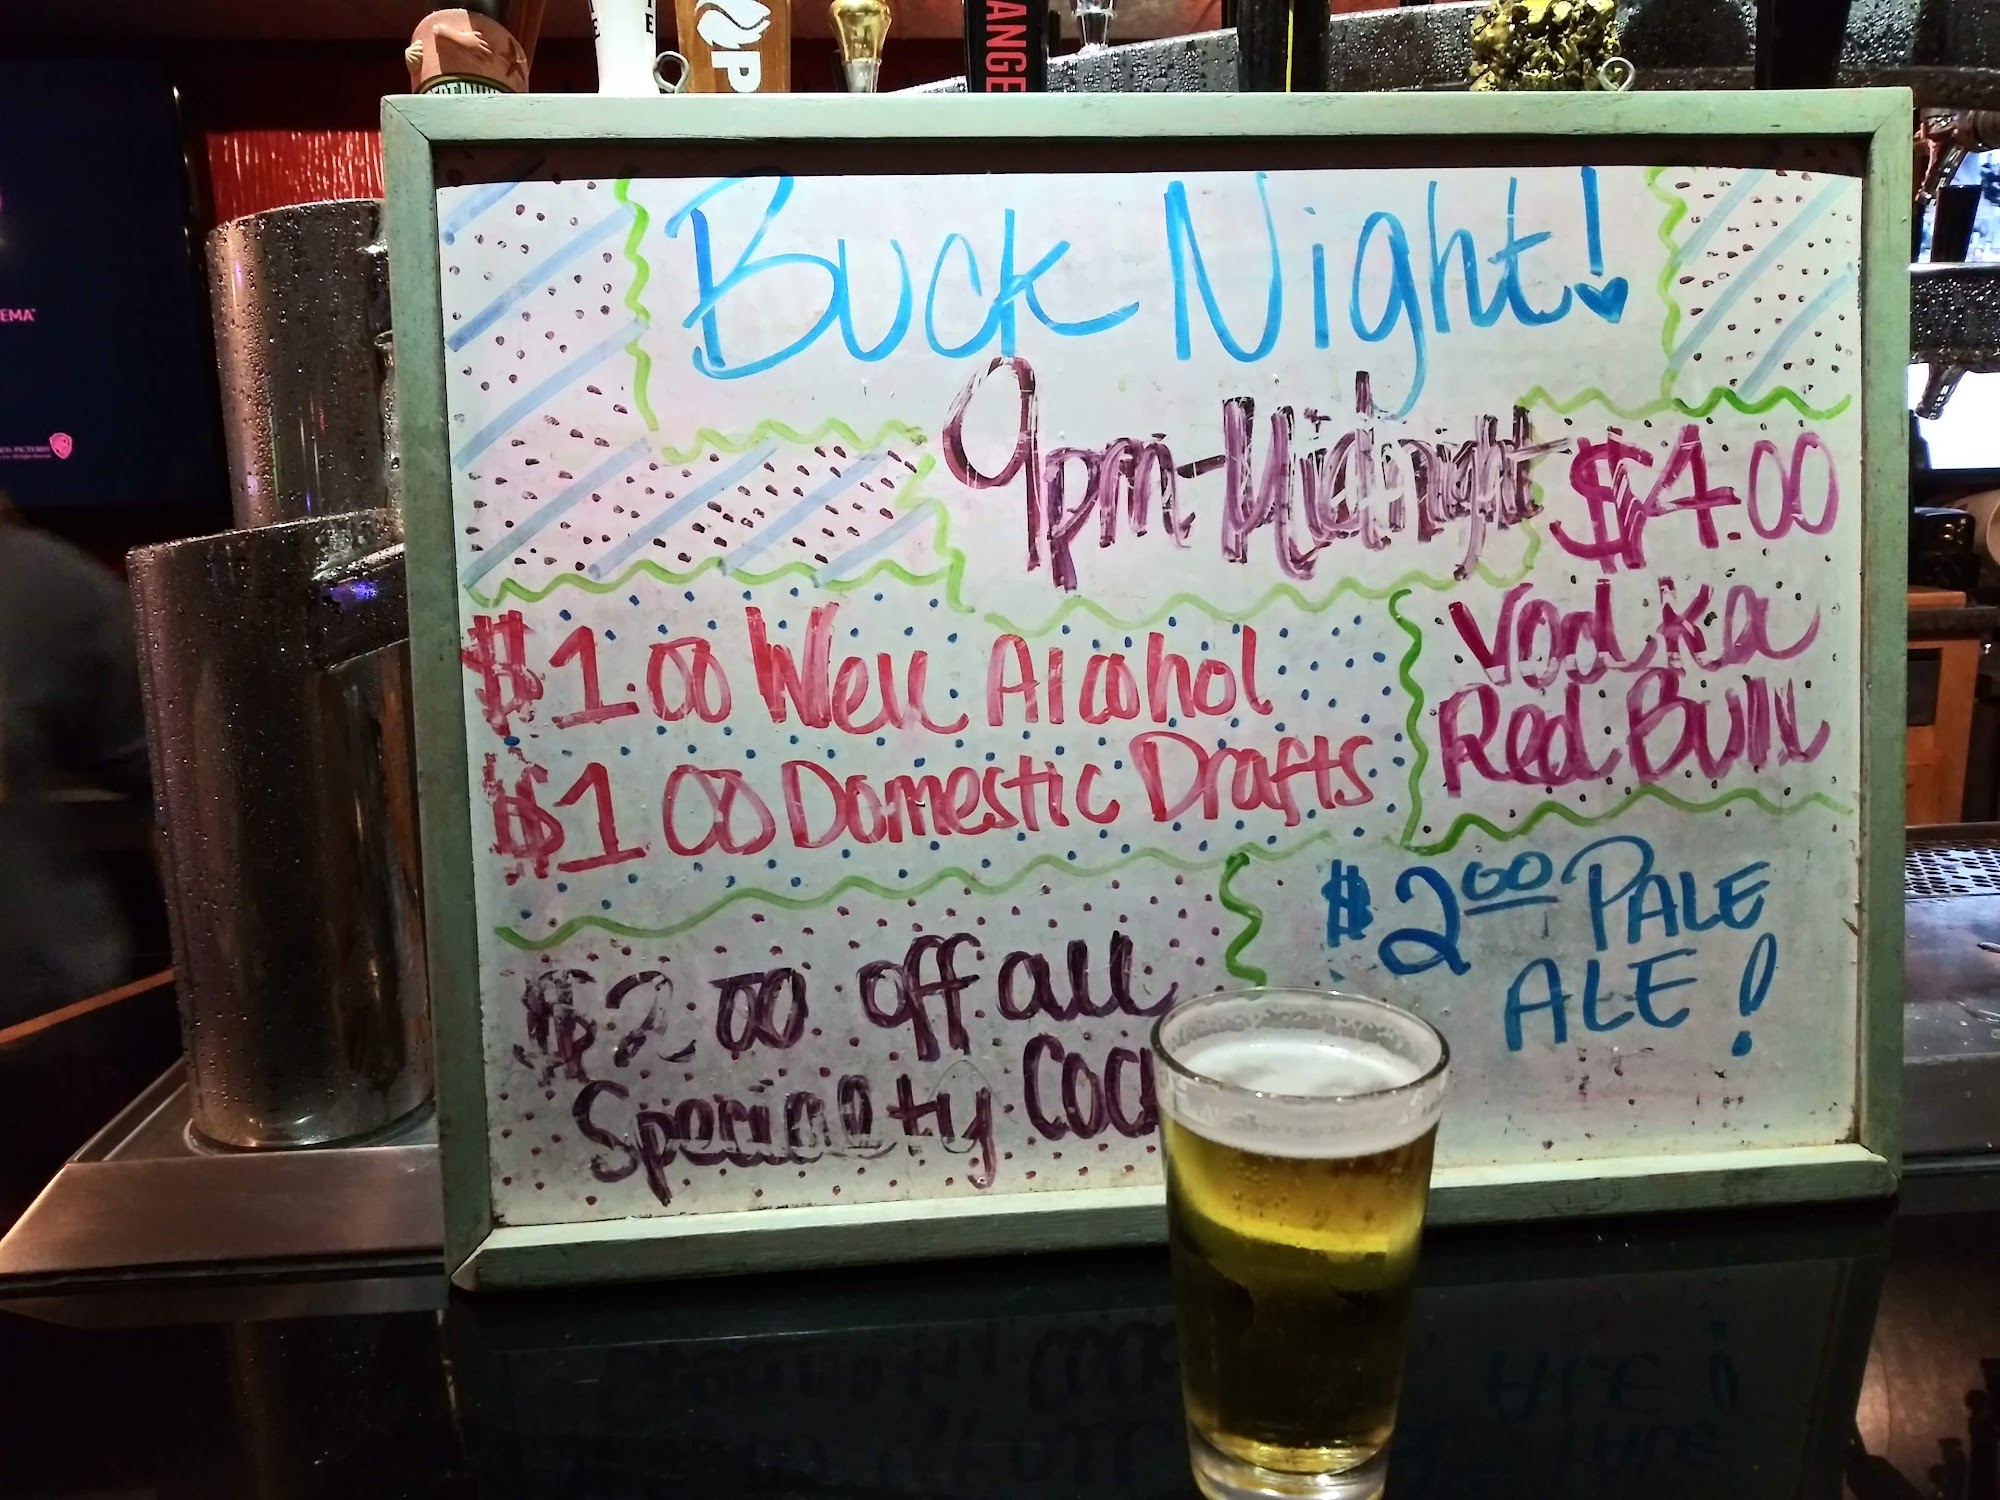 EMA
ANGE
Buck Night!
9pm-Midnight
$1.00 Well Alcohol
$1.00 Domestic Drafts
$4.00
Vodka
Red Bull
$2.00 off all
Specialty
$2.00 PALE
ALE!